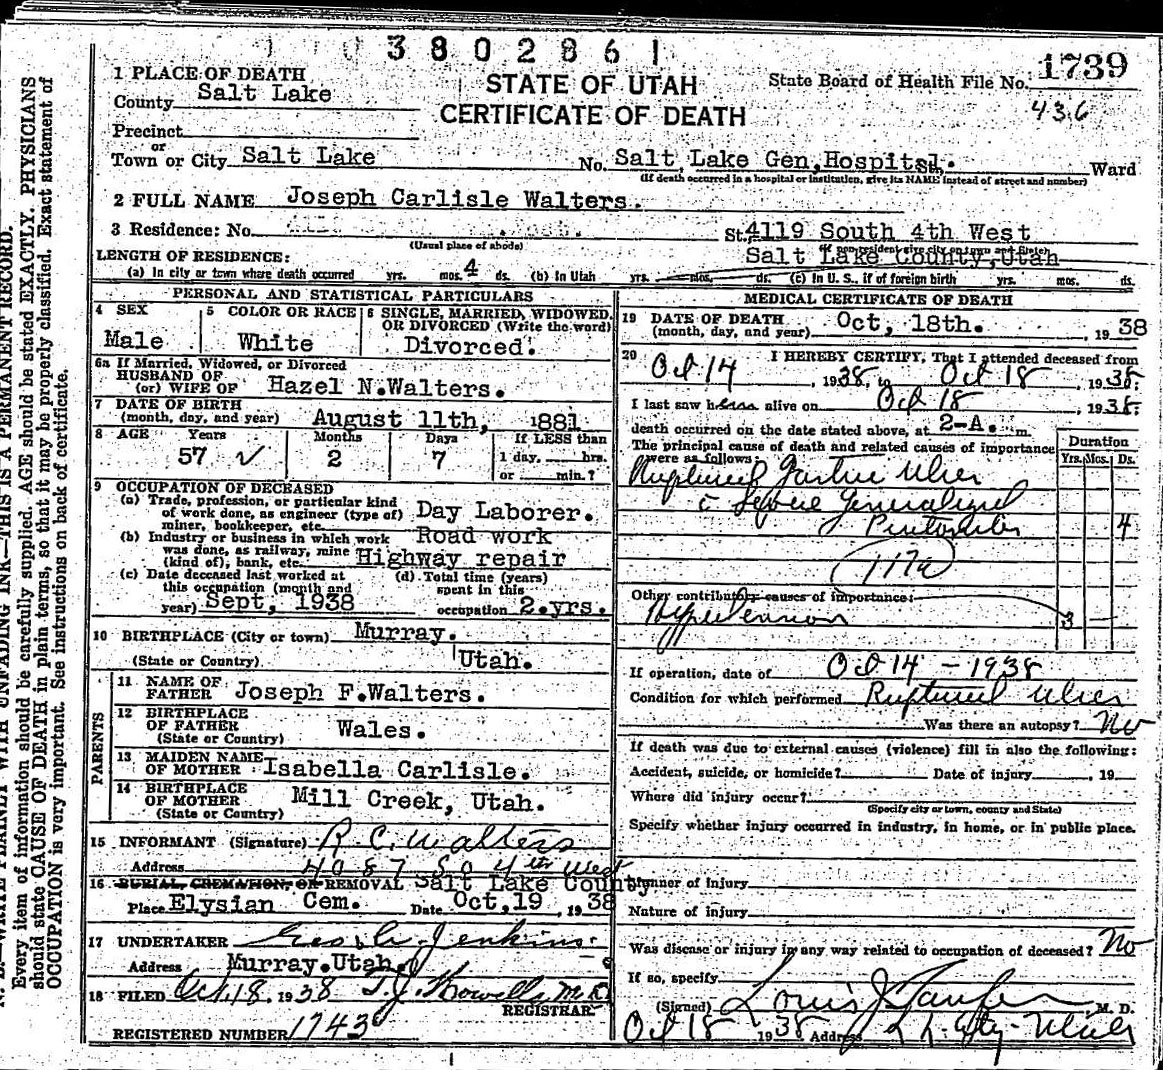 3802861
1 PLACE OF DEATH
County Salt Lake
STATE OF UTAH
CERTIFICATE OF DEATH
State Board of Health File No. 1739
436
Precinct
or
Town or City Salt Lake No. Salt Lake Gen, Hospital. Ward
(If death occurred in a hospital or institution, give its NAME instead of street and number)
2 FULL NAME Joseph Carlisle Walters.
3 Residence: No. St. 4119 South 4th West
(Usual place of abode)
Salt Lake County, Utah
LENGTH OF RESIDENCE:
(a) In city or town where death occurred yrs. mos. 4 ds. (b) In Utah yrs. mos. ds. (c) In U. S., if of foreign birth yrs. mos. ds.
PERSONAL AND STATISTICAL PARTICULARS
4 SEX
Male
5 COLOR OR RACE
White
6 SINGLE, MARRIED, WIDOWED,
OR DIVORCED (Write the word)
Divorced.
6a If Married, Widowed, or Divorced
HUSBAND OF
(or) WIFE OF Hazel N.Walters.
7 DATE OF BIRTH
(month, day, and year) August 11th, 1881
8 AGE Years Months Days If LESS than
57 ✓ 2 7 1 day, hrs.
or min.?
9 OCCUPATION OF DECEASED
(a) Trade, profession, or particular kind
of work done, as engineer (type of) Day Laborer.
miner, bookkeeper, etc.
(b) Industry or business in which work Road work
was done, as railway, mine
(kind of), bank, etc. Highway repair
(c) Date deceased last worked at
this occupation (month and
year) Sept, 1938
(d) Total time (years)
spent in this
occupation 2.yrs.
10 BIRTHPLACE (City or town) Murray.
(State or Country) Utah.
PARENTS
11 NAME OF
FATHER Joseph F.Walters.
12 BIRTHPLACE
OF FATHER Wales.
(State or Country)
13 MAIDEN NAME
OF MOTHER Isabella Carlisle.
14 BIRTHPLACE
OF MOTHER Mill Creek, Utah.
(State or Country)
15 INFORMANT (Signature) R C. Walters
Address 4087 So 4th West
16 BURIAL, CREMATION, OR REMOVAL Salt Lake County
Place Elysian Cem. Date Oct,19, 1938
17 UNDERTAKER Jenkins
Address Murray.Utah.
18 FILED Oct. 18. 1938 T. J. Howells M.D.
REGISTRAR
REGISTERED NUMBER 1743
MEDICAL CERTIFICATE OF DEATH
19 DATE OF DEATH
(month, day, and year) Oct, 18th. , 1938
20 I HEREBY CERTIFY, That I attended deceased from
Oct 14, 1938, to Oct 18, 1938;
I last saw him alive on Oct 18, 1938;
death occurred on the date stated above, at 2-A. m.
The principal cause of death and related causes of importance
were as follows:
Duration
Yrs. Mos. Ds.
Ruptured Gastric Ulcer
c Severe Generalized
Peritonitis 4
117a
Other contributory causes of importance:
Hypertension 3 —
If operation, date of Oct 14 - 1938
Condition for which performed Ruptured Ulcer
Was there an autopsy? No
If death was due to external causes (violence) fill in also the following:
Accident, suicide, or homicide? Date of injury , 19
Where did injury occur?
(Specify city or town, county and State)
Specify whether injury occurred in industry, in home, or in public place.
Manner of injury
Nature of injury
Was disease or injury in any way related to occupation of deceased? No
If so, specify
(Signed) Louis J. Taufer M. D.
Oct 18 1938 Address
Every item of information should be carefully supplied. AGE should be stated EXACTLY. PHYSICIANS
should state CAUSE OF DEATH in plain terms, so that it may be properly classified. Exact statement of
OCCUPATION is very important. See instructions on back of certificate.